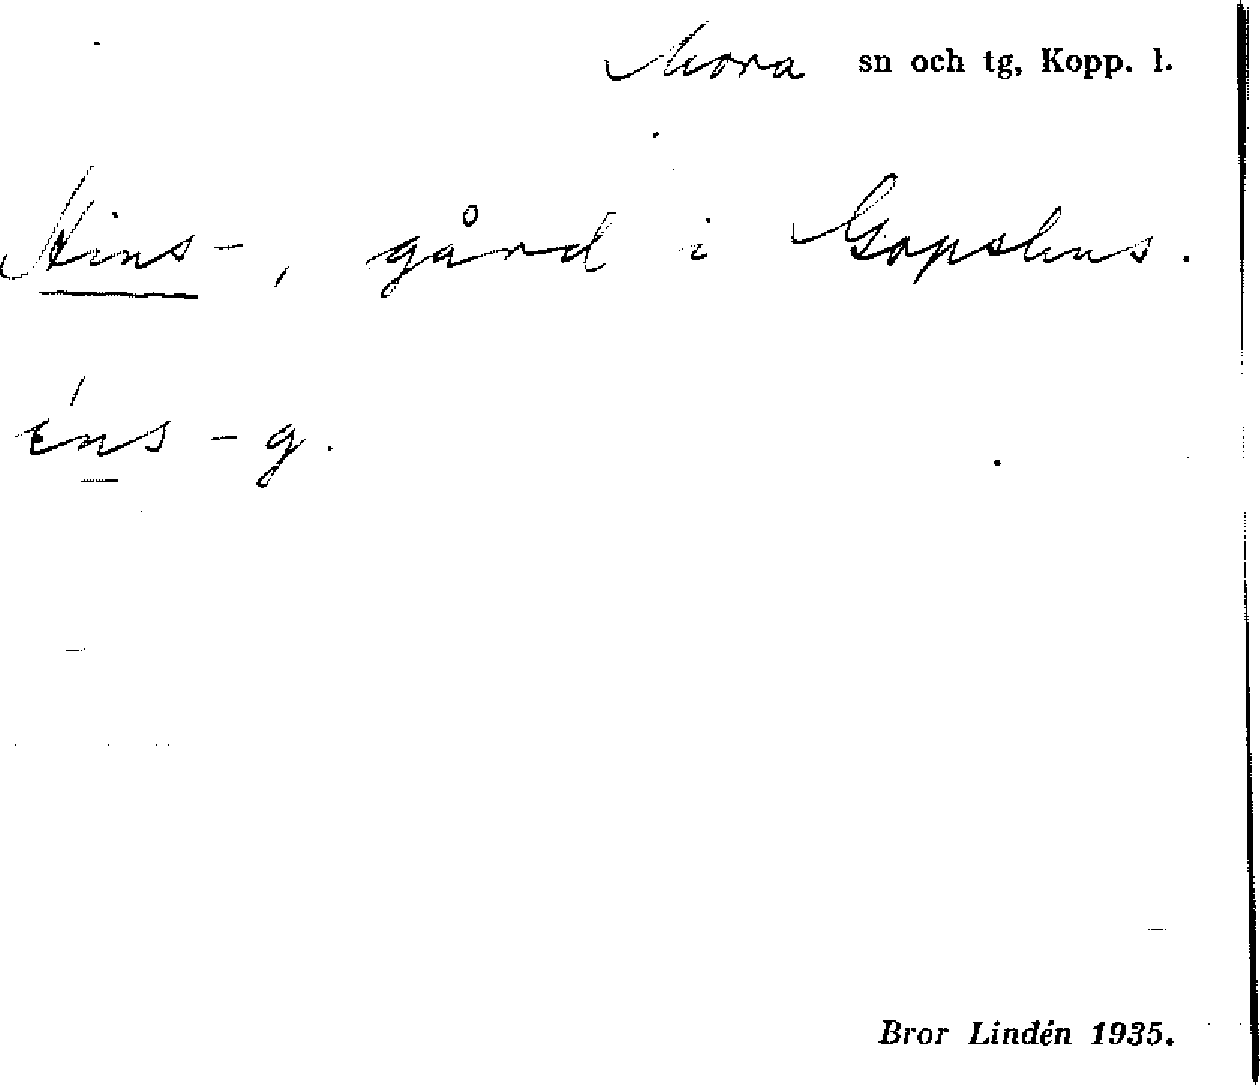 Mora sn och tg, Kopp. l.
Hins-, gård i Gopshus.
ins - g.
Bror Lindén 1935.